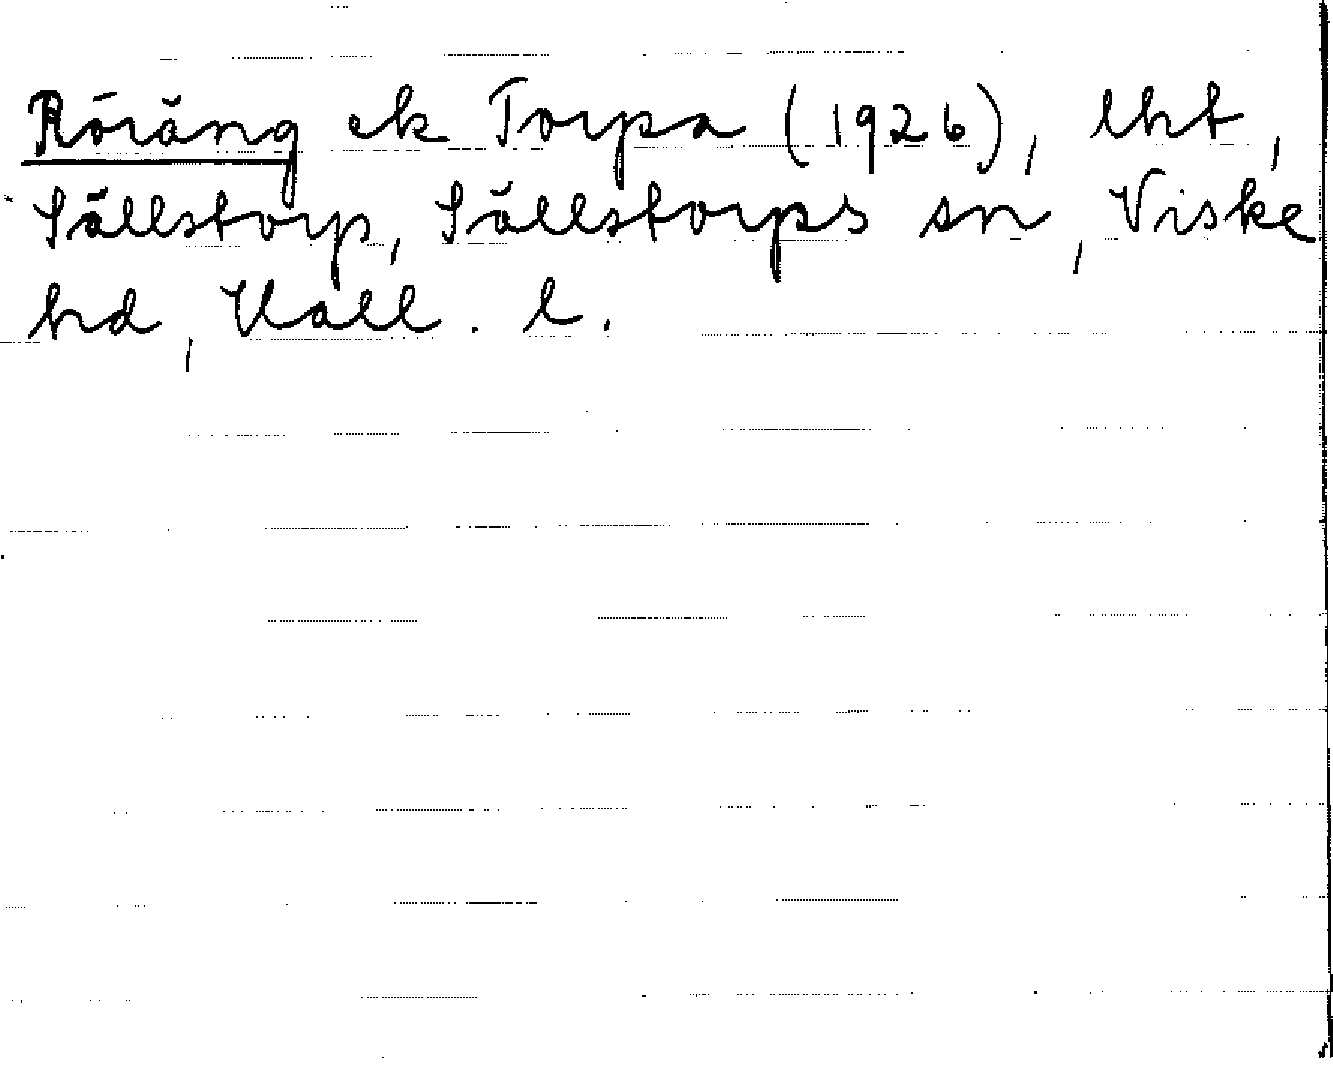 Röräng ek Torpa (1926), lht,
Sällstorp, Sällstorps sn, Viske
hd, Hall. l.